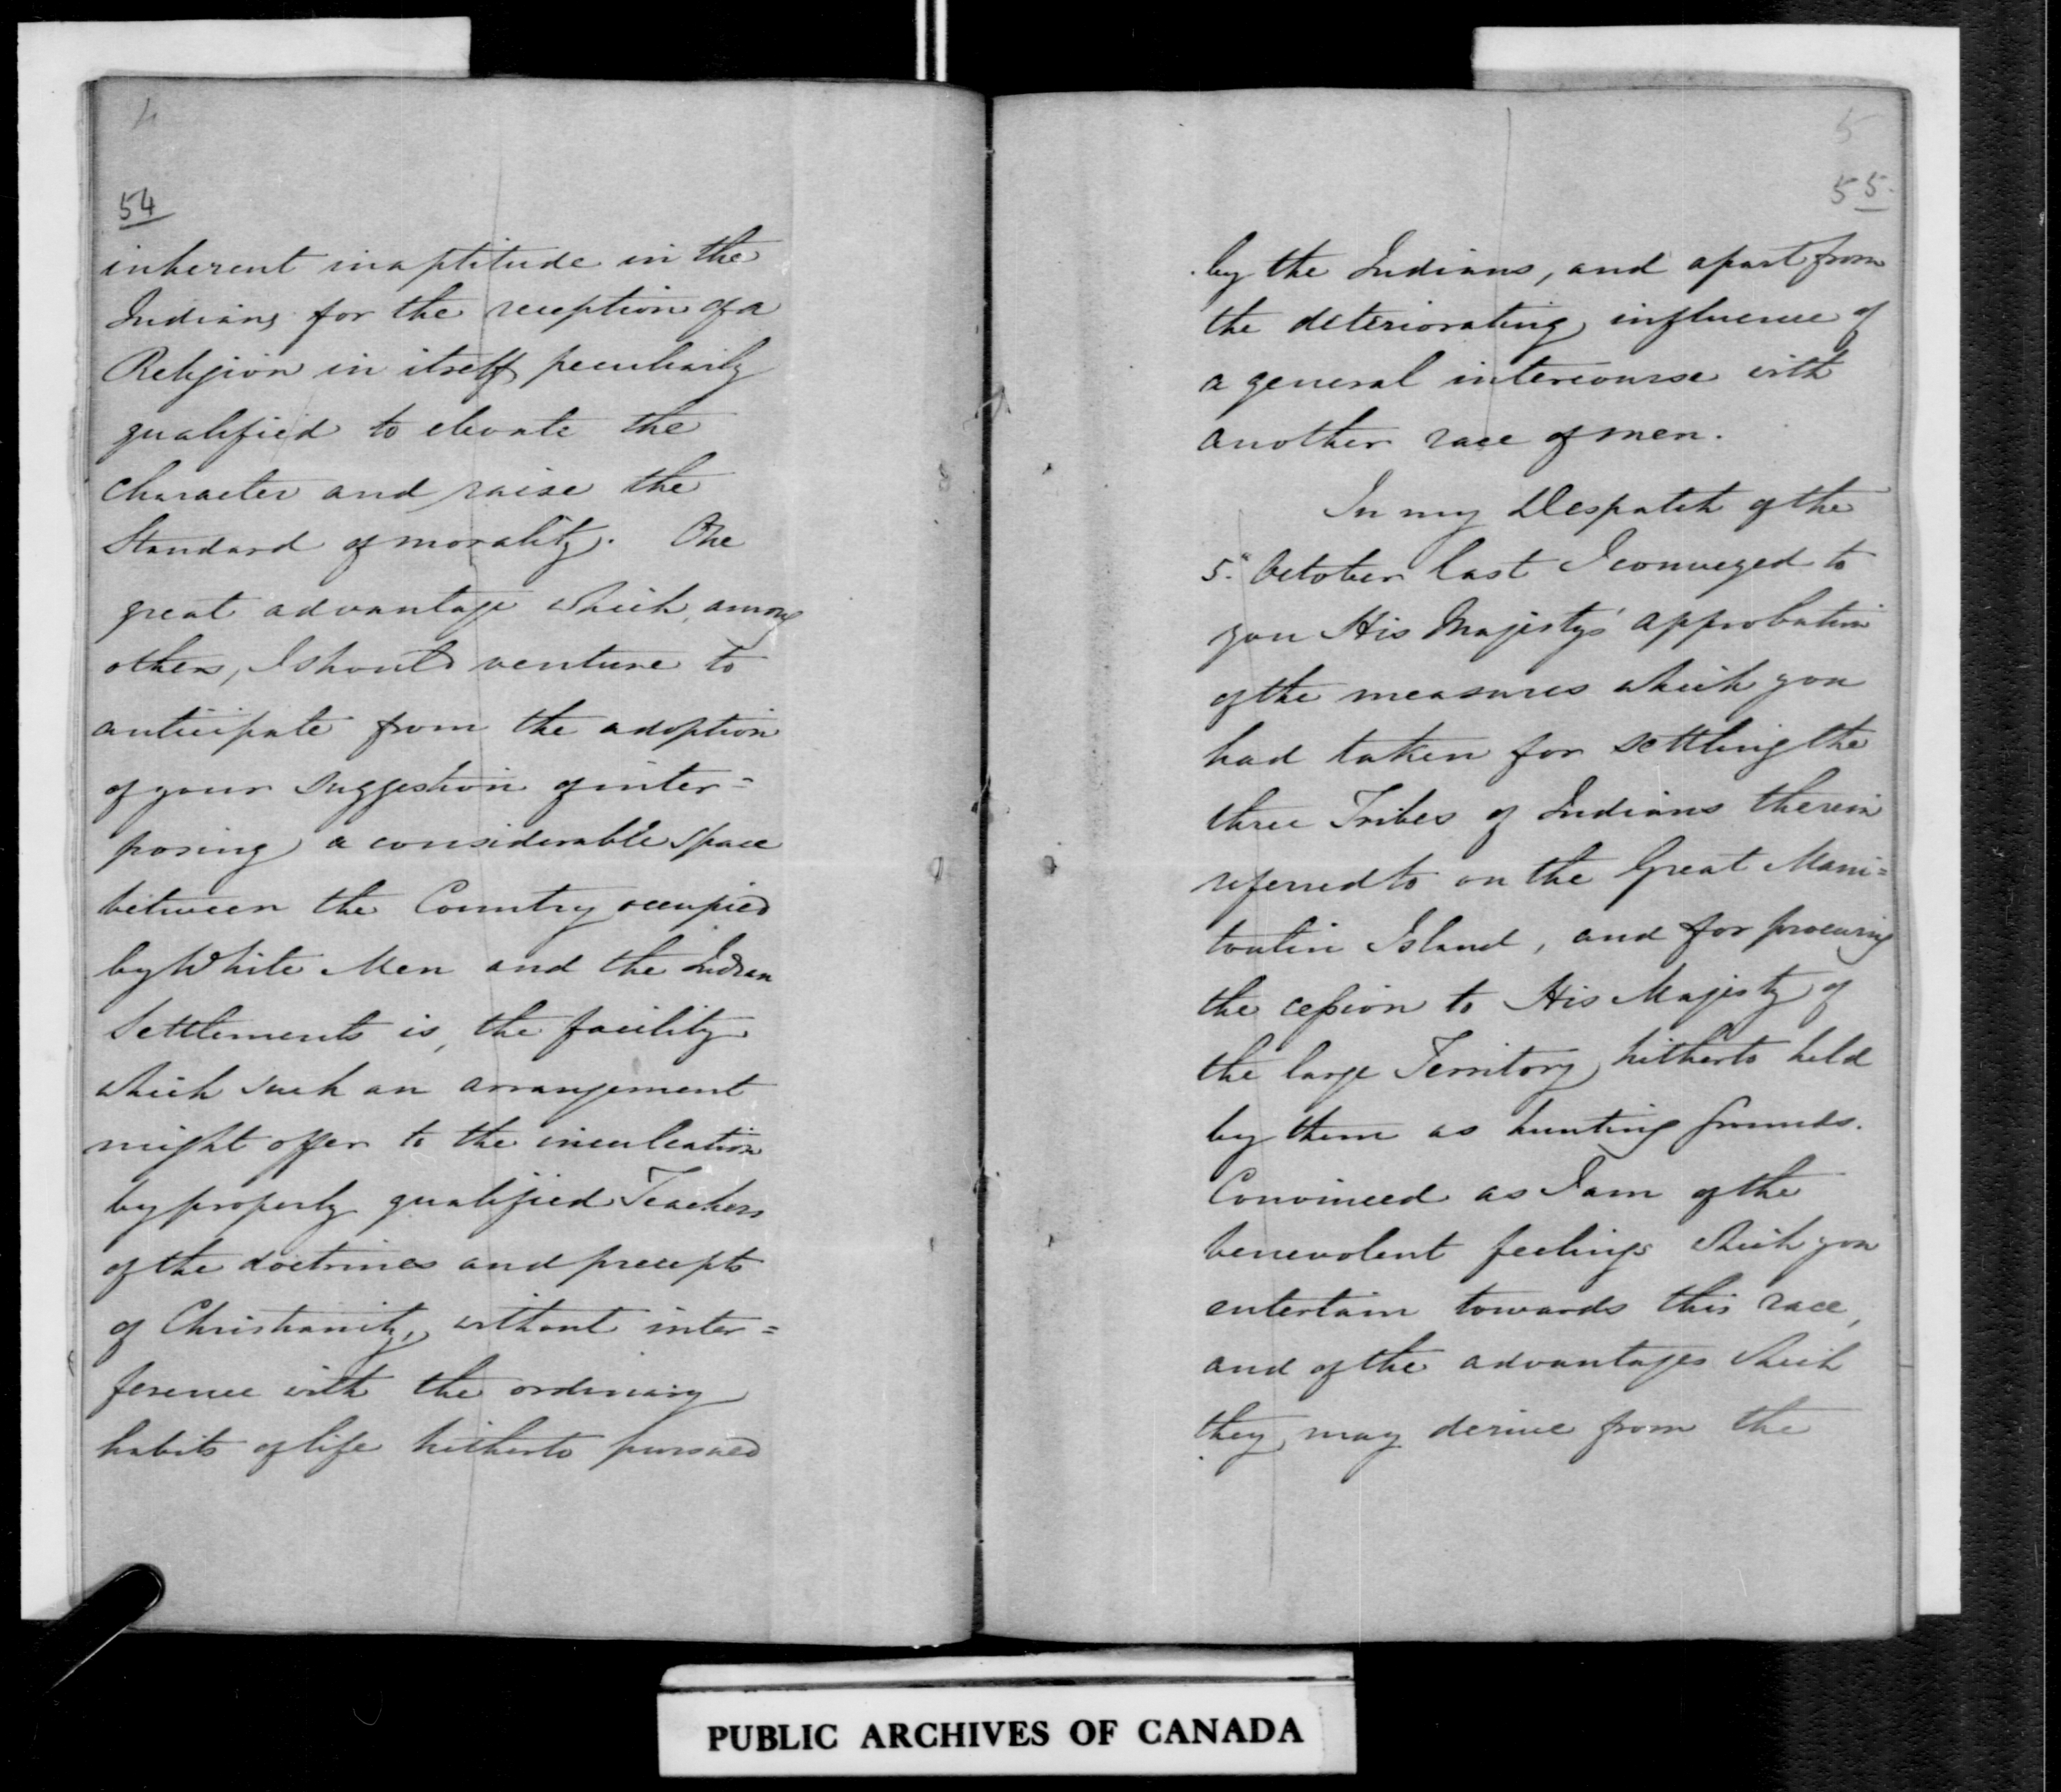 4
54
inherent inaptitude in the
Indians for the reception of a
Religion in itself peculiarly
qualified to elevate the
character and raise the
Standard of morality. One
great advantage which, among
others, I should venture to
anticipate from the adoption
of your suggestion of inter=
posing a considerable space
between the Country occupied
by White Men and the Indian
Settlements is, the facility
which such an arrangement
might offer to the inculcation
by properly qualified Teachers
of the doctrines and precepts
of Christianity, without inter=
ference with the ordinary
habits of life hitherto pursued
5
55.
by the Indians, and apart from
the deteriorating influence of
a general intercourse with
another race of men.
In my Despatch of the
5th October last I conveyed to
you His Majesty's approbation
of the measures which you
had taken for settling the
three Tribes of Indians therein
referred to on the Great Mani=
toulin Island, and for procuring
the cession to His Majesty of
the large Territory hitherto held
by them as hunting grounds.
Convinced as I am of the
benevolent feelings which you
entertain towards this race,
and of the advantages which
they may derive from the
PUBLIC ARCHIVES OF CANADA